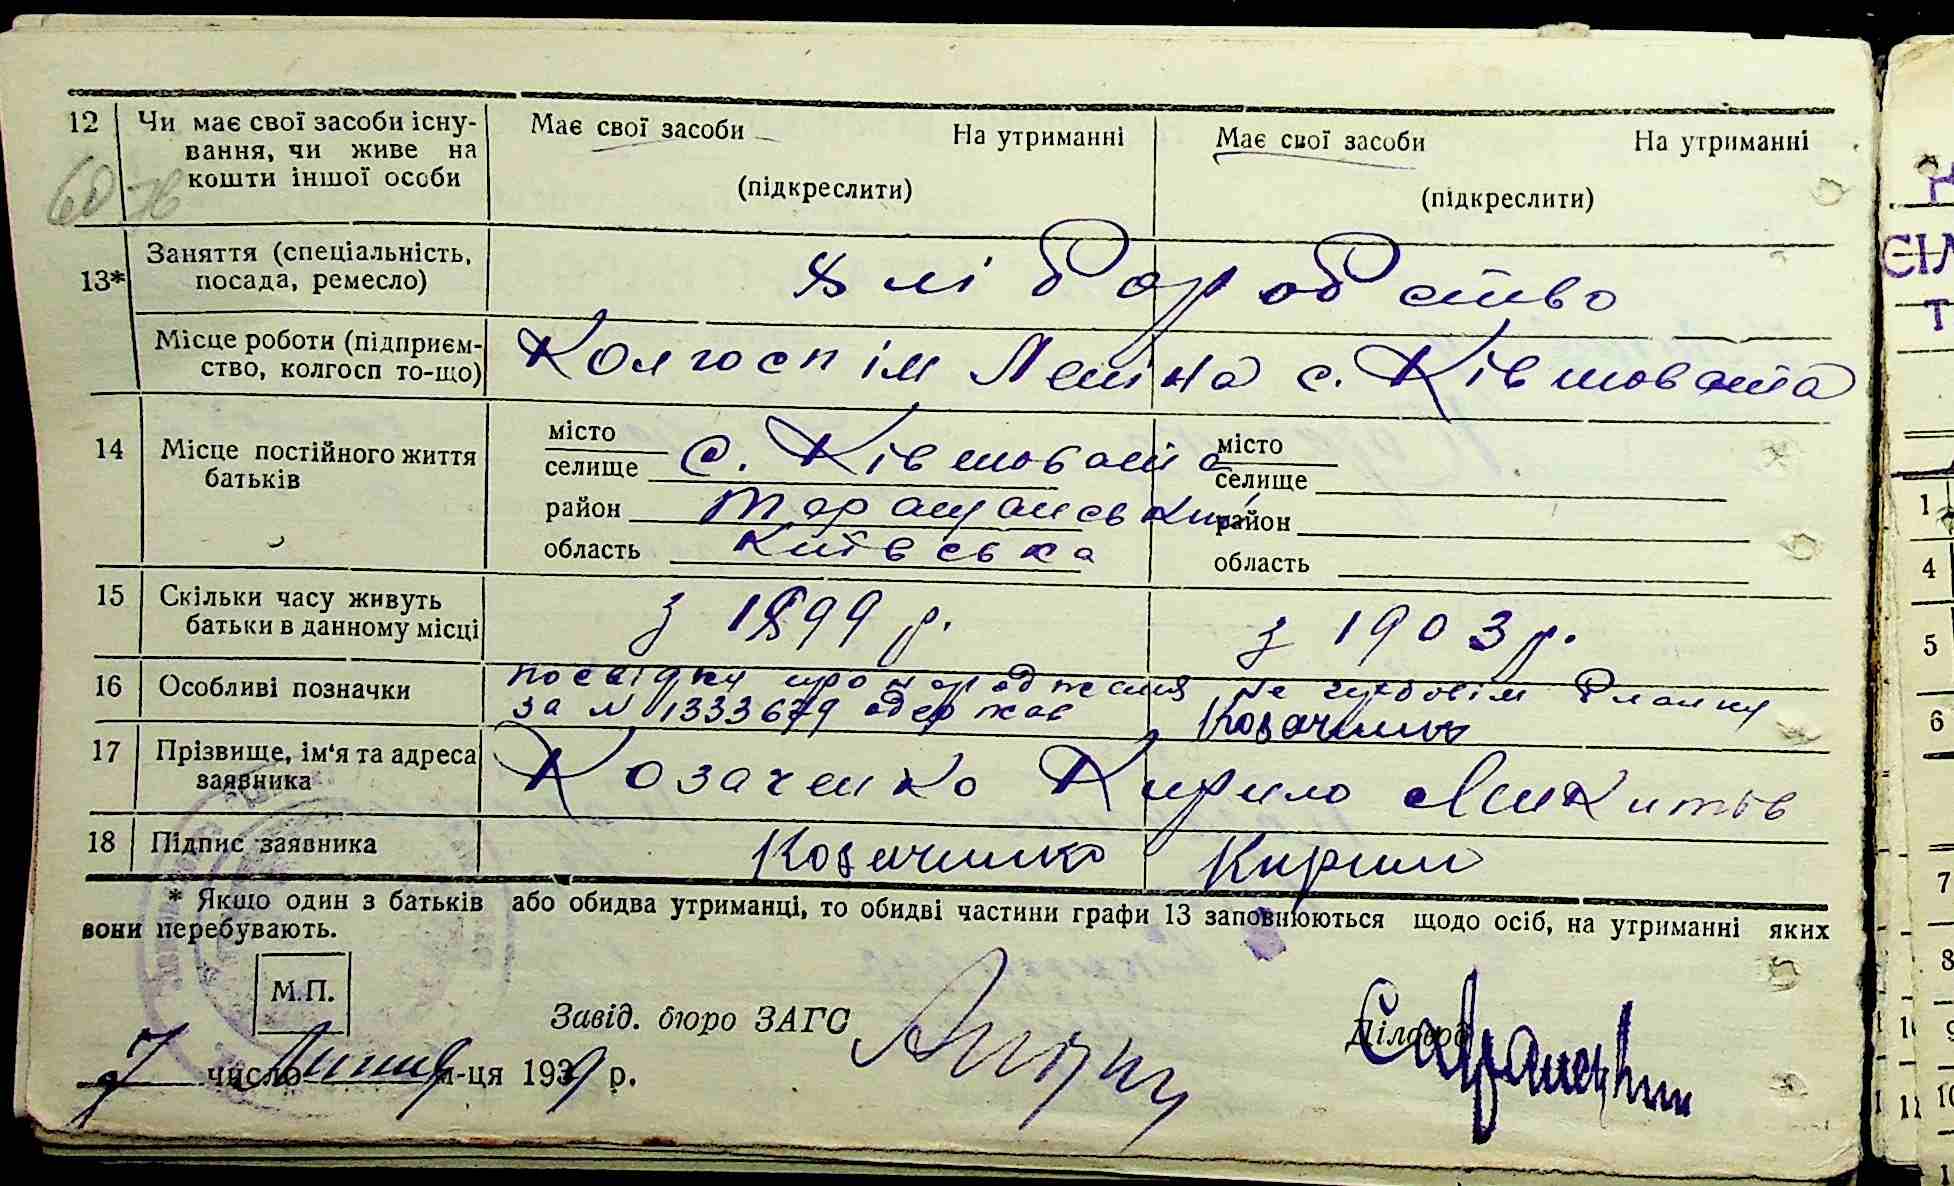 12 Чи має свої засоби існу-
вання, чи живе на
кошти іншої особи
Має свої засоби На утриманні
(підкреслити)
Має свої засоби На утриманні
(підкреслити)
13* Заняття (спеціальність,
посада, ремесло)
Хліборобство
Місце роботи (підприєм-
ство, колгосп то-що)
Колгосп ім Леніна с. Ківшовата
14 Місце постійного життя
батьків
місто
селище с. Ківшовата
район Таращанський
область Київська
місто
селище
район
область
15 Скільки часу живуть
батьки в данному місці
з 1899 р.
з 1903 р.
16 Особливі позначки
посвідку про народження на гербовім бланку
за № 1333679 одержав Козаченко
17 Прізвище, ім'я та адреса
заявника
Козаченко Кирило Микитов
18 Підпис заявника
Козаченко Кирило
* Якщо один з батьків або обидва утриманці, то обидві частини графи 13 заповнюються щодо осіб, на утриманні яких
вони перебувають.
М.П.
Завід. бюро ЗАГС
Діловод
7 число липня м-ця 1939 р.
1
4
5
6
7
8
9
10
11